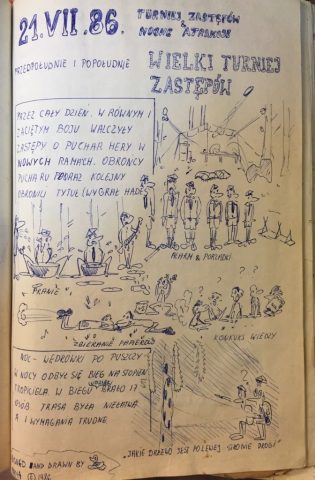 21.VII.86. TURNIEJ ZASTĘPÓW
& NOCNE ATRAKCJE
PRZEDPOŁUDNIE I POPOŁUDNIE
WIELKI TURNIEJ
ZASTĘPÓW
PRZEZ CAŁY DZIEŃ W RÓWNYM I
ZACIĘTYM BOJU WALCZYŁY
ZASTĘPY O PUCHAR HERY W
NOWYCH RAMACH. OBROŃCY
PUCHARU PO RAZ KOLEJNY
OBRONILI TYTUŁ (WYGRAŁ HADES
ALARM & PORZĄDKI
PRANIE
ZBIERANIE PAPIERÓW
KONKURS WIEDZY
NOC - WĘDRÓWKI PO PUSZCZY
W NOCY ODBYŁ SIĘ BIEG NA STOPIEŃ
TROPICIELA. W BIEGU BRAŁO 17
OSÓB. TRASA BYŁA NIEŁATWA
A I WYMAGANIA TRUDNE.
"JAKIE DRZEWO JEST PO LEWEJ STRONIE DROGI"
AND DRAWN BY
© 1986